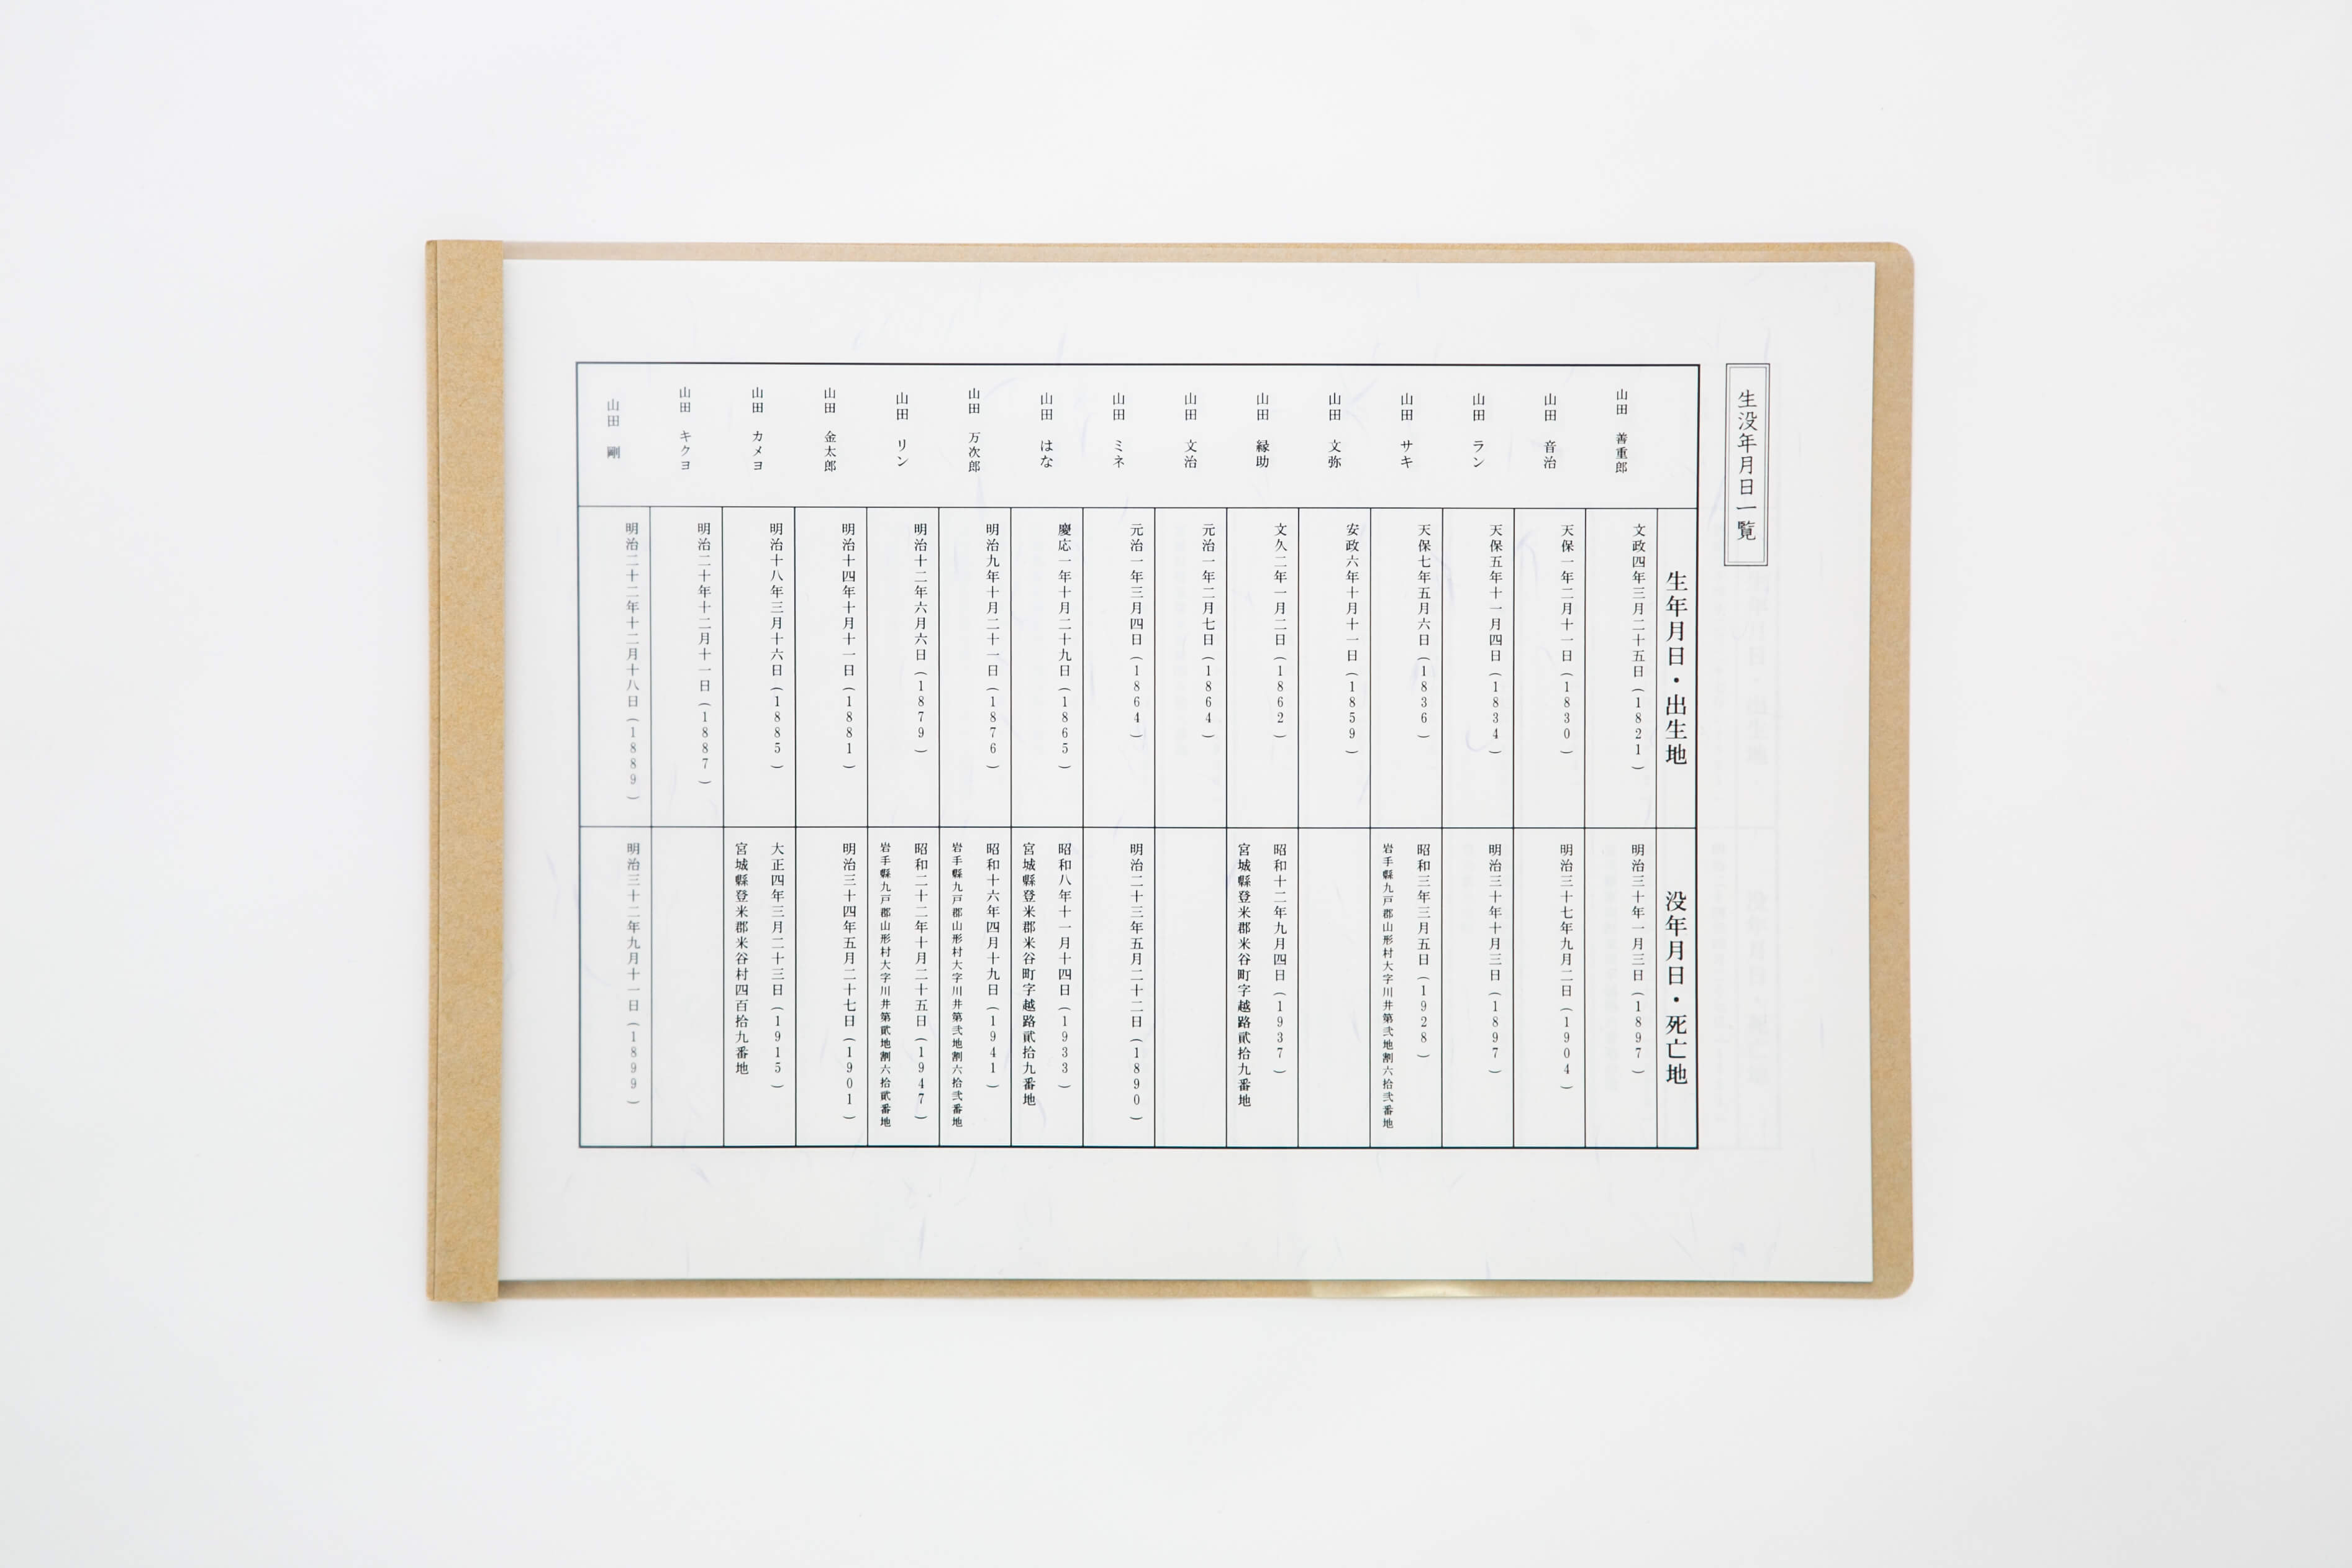 生没年月日一覧
生年月日・出生地
没年月日・死亡地
山田 善重郎
文政四年三月二十五日(1821)
明治三十年一月三日(1897)
山田 音治
天保一年二月十一日(1830)
明治三十七年九月二日(1904)
山田 ラン
天保五年十一月四日(1834)
明治三十年十月三日(1897)
山田 サキ
天保七年五月六日(1836)
昭和三年三月五日(1928)
岩手縣九戸郡山形村大字川井第弐地割六拾弐番地
山田 文弥
安政六年十月十一日(1859)
山田 縁助
文久二年一月二日(1862)
昭和十二年九月四日(1937)
宮城縣登米郡米谷町字越路貳拾九番地
山田 文治
元治一年二月七日(1864)
山田 ミネ
元治一年三月四日(1864)
明治二十三年五月二十二日(1890)
山田 はな
慶応一年十月二十九日(1865)
昭和八年十一月十四日(1933)
宮城縣登米郡米谷町字越路貳拾九番地
山田 万次郎
明治九年十月二十一日(1876)
昭和十六年四月十九日(1941)
岩手縣九戸郡山形村大字川井第弐地割六拾弐番地
山田 リン
明治十二年六月六日(1879)
昭和二十二年十月二十五日(1947)
岩手縣九戸郡山形村大字川井第貳地割六拾貳番地
山田 金太郎
明治十四年十月十一日(1881)
明治三十四年五月二十七日(1901)
山田 カメヨ
明治十八年三月十六日(1885)
大正四年三月二十三日(1915)
宮城縣登米郡米谷村四百拾九番地
山田 キクヨ
明治二十年十二月十一日(1887)
山田 剛
明治二十二年十二月十八日(1889)
明治三十二年九月十一日(1899)